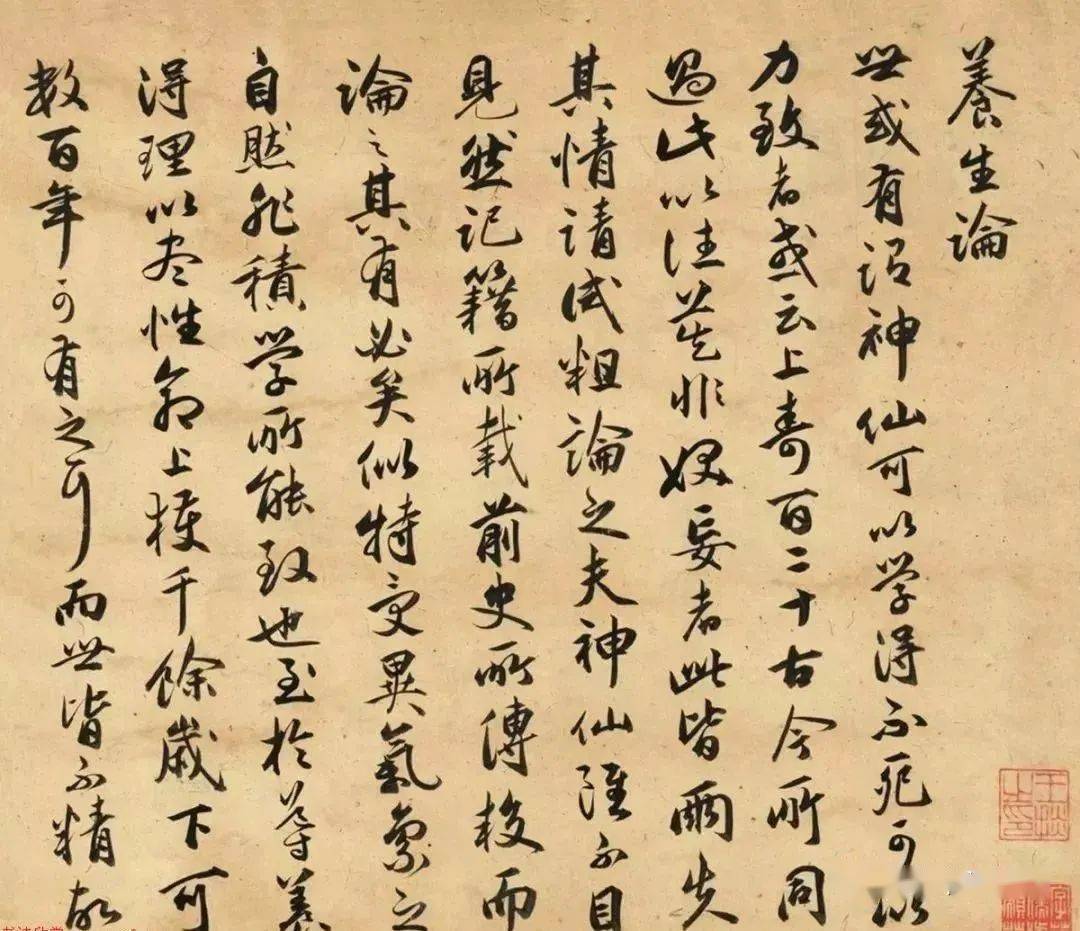 養生論
世或有謂神仙可以学得不死可以
力致者或云上壽百二十古今所同
過此以往莫非妖妄者此皆兩失
其情請試粗論之夫神仙雖不目
見然記籍所載前史所傳較而
論之其有必矣似特受異氣稟之
自然非積学所能致也至於導養
得理以尽性命上獲千餘歲下可
數百年可有之耳而世皆不精故